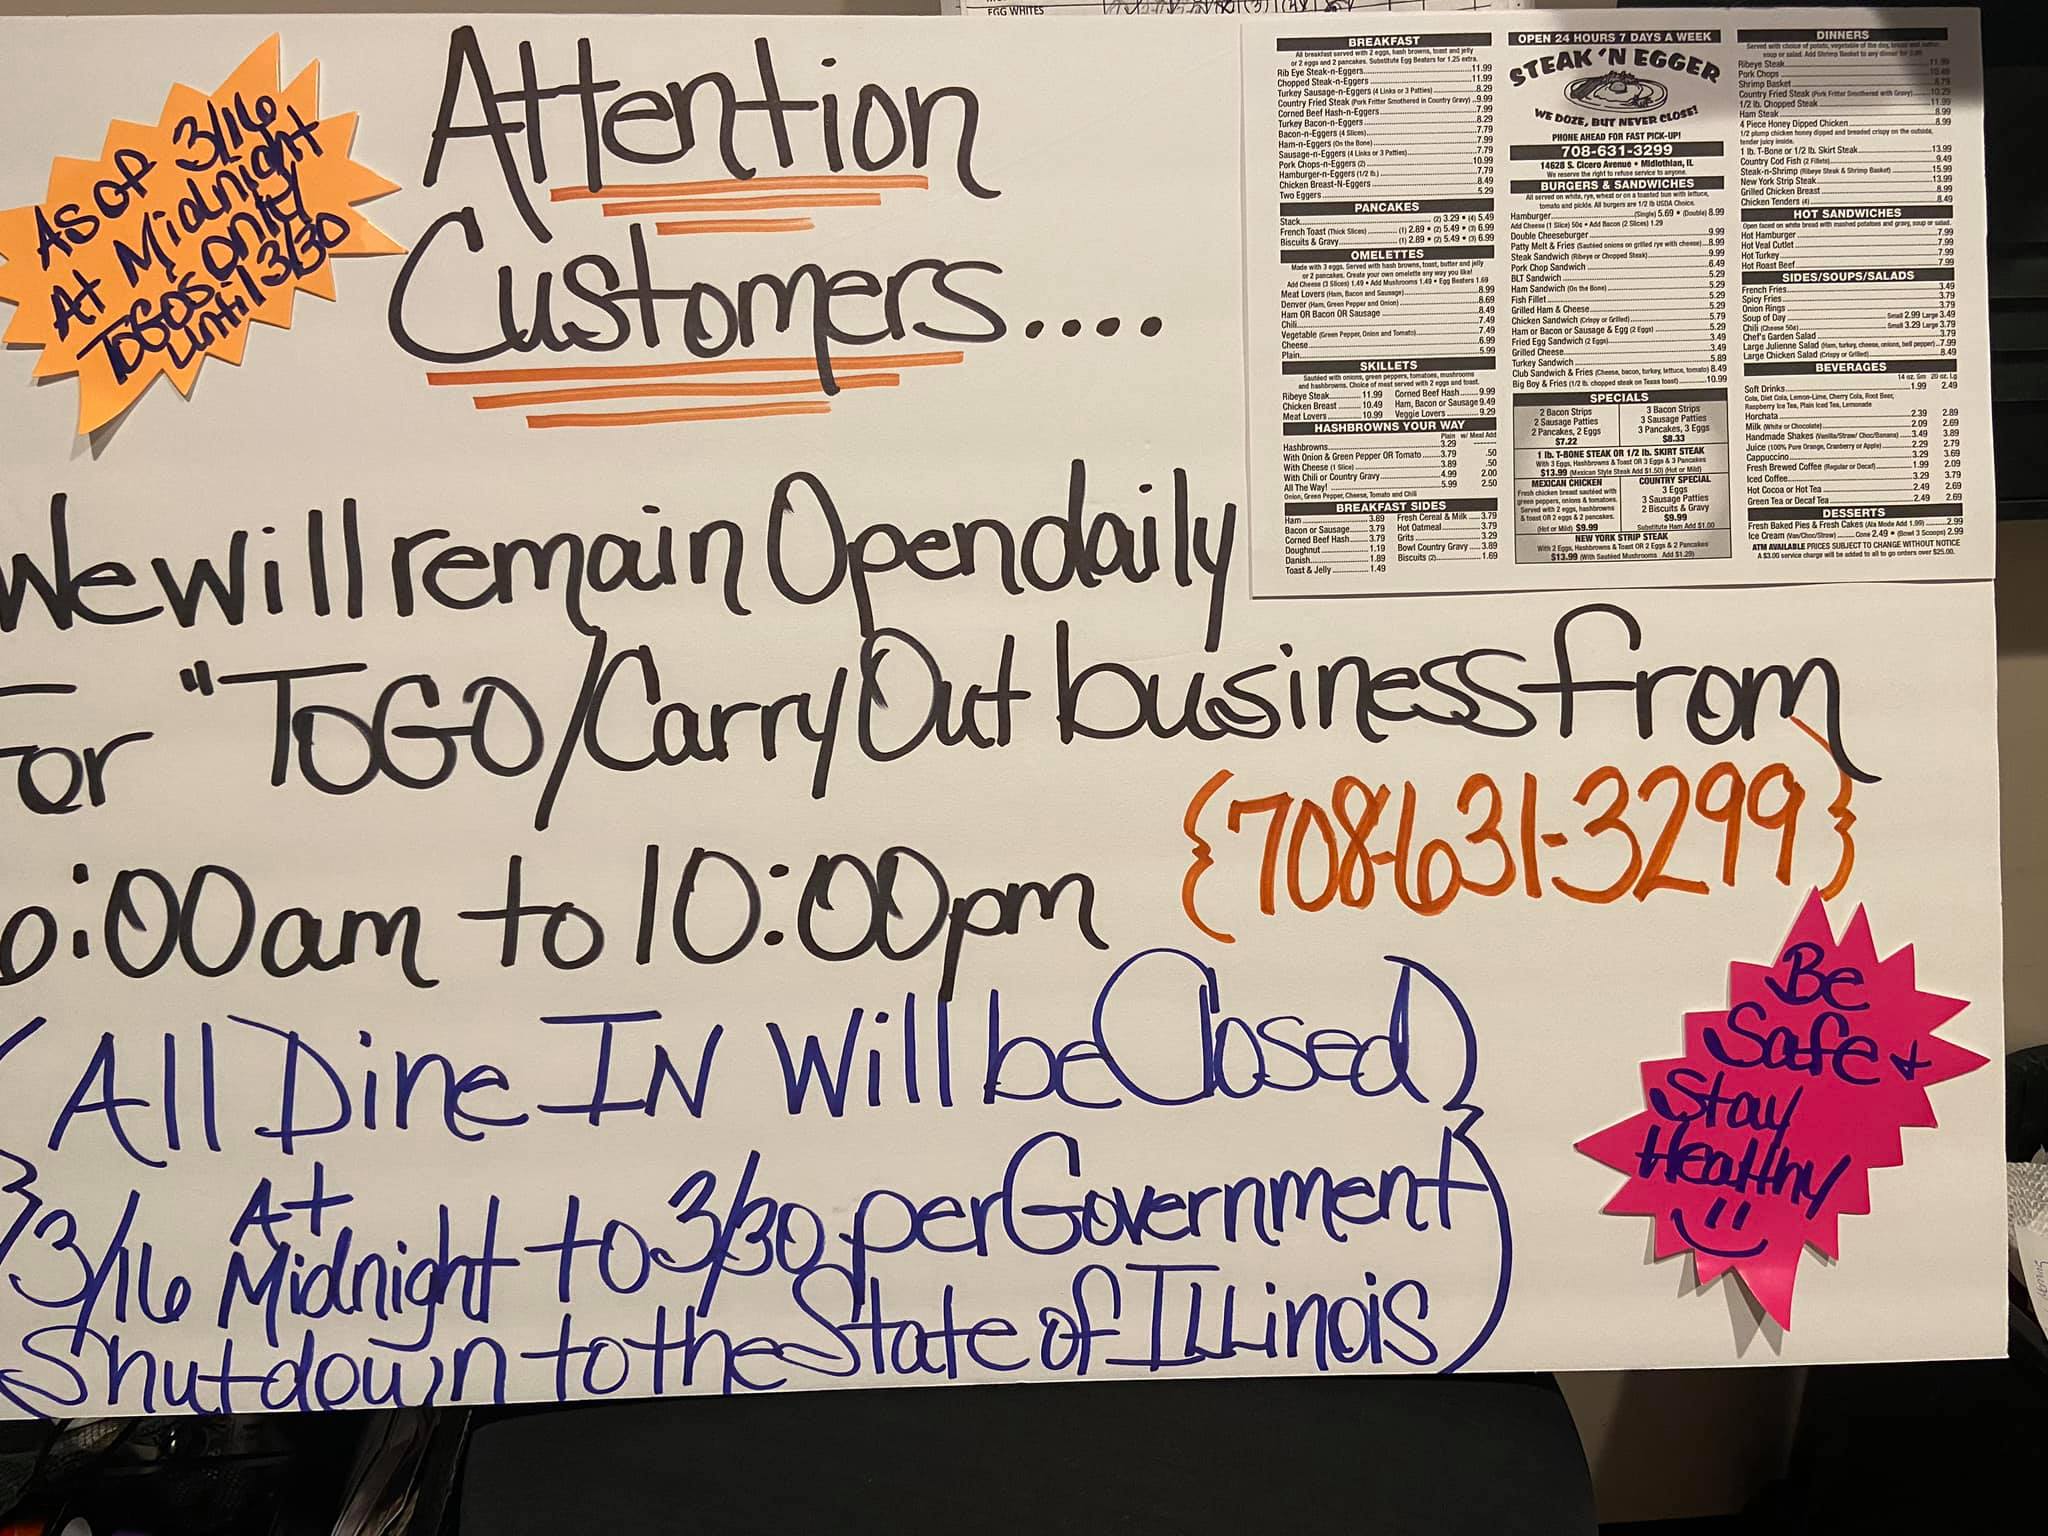 EGG WHITES
As of 3/16
At Midnight
ToGos only
until 3/30
Attention
Customers....
We will remain Open daily
For "ToGO/Carry Out business from
{708-631-3299}
6:00am to 10:00pm
{All Dine IN Will be Closed
3/16 At Midnight to 3/30 per Government
Shutdown to the State of ILLinois}
Be
Safe +
Stay
Healthy
BREAKFAST
All breakfast served with 2 eggs, hash browns, toast and jelly
or 2 eggs and 2 pancakes. Substitute Egg Beaters for 1.25 extra.
Rib Eye Steak-n-Eggers 11.99
Chopped Steak-n-Eggers 11.99
Turkey Sausage-n-Eggers (4 Links or 3 Patties) 8.29
Country Fried Steak (Pork Fritter Smothered in Country Gravy) 9.99
Corned Beef Hash-n-Eggers 7.99
Turkey Bacon-n-Eggers 8.29
Bacon-n-Eggers (4 Slices) 7.79
Ham-n-Eggers (On the Bone) 7.99
Sausage-n-Eggers (4 Links or 3 Patties) 7.79
Pork Chops-n-Eggers (2) 10.99
Hamburger-n-Eggers (1/2 lb.) 7.79
Chicken Breast-N-Eggers 8.49
Two Eggers 5.29
PANCAKES
Stack (2) 3.29 • (4) 5.49
French Toast (Thick Slices) (1) 2.89 • (2) 5.49 • (3) 6.99
Biscuits & Gravy (1) 2.89 • (2) 5.49 • (3) 6.99
OMELETTES
Made with 3 eggs. Served with hash browns, toast, butter and jelly
or 2 pancakes. Create your own omelette any way you like!
Add Cheese (3 Slices) 1.49 • Add Mushrooms 1.49 • Egg Beaters 1.69
Meat Lovers (Ham, Bacon and Sausage) 8.99
Denver (Ham, Green Pepper and Onion) 8.69
Ham OR Bacon OR Sausage 8.49
Chili 7.49
Vegetable (Green Pepper, Onion and Tomato) 7.49
Cheese 6.99
Plain 5.99
SKILLETS
Sautéed with onions, green peppers, tomatoes, mushrooms
and hashbrowns. Choice of meat served with 2 eggs and toast.
Ribeye Steak 11.99 Corned Beef Hash 9.99
Chicken Breast 10.49 Ham, Bacon or Sausage 9.49
Meat Lovers 10.99 Veggie Lovers 9.29
HASHBROWNS YOUR WAY
Plain w/ Meal Add
Hashbrowns 3.29 -------
With Onion & Green Pepper OR Tomato 3.79 .50
With Cheese (1 Slice) 3.89 .50
With Chili or Country Gravy 4.99 2.00
All The Way! 5.99 2.50
Onion, Green Pepper, Cheese, Tomato and Chili
BREAKFAST SIDES
Ham 3.89 Fresh Cereal & Milk 3.79
Bacon or Sausage 3.79 Hot Oatmeal 3.79
Corned Beef Hash 3.79 Grits 3.29
Doughnut 1.19 Bowl Country Gravy 3.89
Danish 1.89 Biscuits (2) 1.69
Toast & Jelly 1.49
OPEN 24 HOURS 7 DAYS A WEEK
STEAK 'N EGGER
WE DOZE, BUT NEVER CLOSE!
PHONE AHEAD FOR FAST PICK-UP!
708-631-3299
14628 S. Cicero Avenue • Midlothian, IL
We reserve the right to refuse service to anyone.
BURGERS & SANDWICHES
All served on white, rye, wheat or on a toasted bun with lettuce,
tomato and pickle. All burgers are 1/2 lb USDA Choice.
Hamburger (Single) 5.69 • (Double) 8.99
Add Cheese (1 Slice) 50¢ • Add Bacon (2 Slices) 1.29
Double Cheeseburger 9.99
Patty Melt & Fries (Sautéed onions on grilled rye with cheese) 8.99
Steak Sandwich (Ribeye or Chopped Steak) 9.99
Pork Chop Sandwich 6.49
BLT Sandwich 5.29
Ham Sandwich (On the Bone) 5.29
Fish Fillet 5.29
Grilled Ham & Cheese 5.29
Chicken Sandwich (Crispy or Grilled) 5.79
Ham or Bacon or Sausage & Egg (2 Eggs) 5.29
Fried Egg Sandwich (2 Eggs) 3.49
Grilled Cheese 3.49
Turkey Sandwich 5.89
Club Sandwich & Fries (Cheese, bacon, turkey, lettuce, tomato) 8.49
Big Boy & Fries (1/2 lb. chopped steak on Texas toast) 10.99
SPECIALS
2 Bacon Strips
2 Sausage Patties
2 Pancakes, 2 Eggs
$7.22
3 Bacon Strips
3 Sausage Patties
3 Pancakes, 3 Eggs
$8.33
1 lb. T-BONE STEAK OR 1/2 lb. SKIRT STEAK
With 3 Eggs, Hashbrowns & Toast OR 3 Eggs & 3 Pancakes
$13.99 (Mexican Style Steak Add $1.50) (Hot or Mild)
MEXICAN CHICKEN
Fresh chicken breast sautéed with
green peppers, onions & tomatoes.
Served with 2 eggs, hashbrowns
& toast OR 2 eggs & 2 pancakes.
(Hot or Mild) $9.99
COUNTRY SPECIAL
3 Eggs
3 Sausage Patties
2 Biscuits & Gravy
$9.99
Substitute Ham Add $1.00
NEW YORK STRIP STEAK
With 2 Eggs, Hashbrowns & Toast OR 2 Eggs & 2 Pancakes
$13.99 (With Sautéed Mushrooms Add $1.29)
DINNERS
Served with choice of potato, vegetable of the day, bread and butter,
soup or salad. Add Shrimp Basket to any dinner for
Ribeye Steak 11.99
Pork Chops 10.49
Shrimp Basket 8.79
Country Fried Steak (Pork Fritter Smothered with Gravy) 10.29
1/2 lb. Chopped Steak 11.99
Ham Steak 8.99
4 Piece Honey Dipped Chicken 8.99
1/2 plump chicken honey dipped and breaded crispy on the outside,
tender juicy inside.
1 lb. T-Bone or 1/2 lb. Skirt Steak 13.99
Country Cod Fish (2 Fillets) 9.49
Steak-n-Shrimp (Ribeye Steak & Shrimp Basket) 15.99
New York Strip Steak 13.99
Grilled Chicken Breast 8.99
Chicken Tenders (4) 8.49
HOT SANDWICHES
Open faced on white bread with mashed potatoes and gravy, soup or salad.
Hot Hamburger 7.99
Hot Veal Cutlet 7.99
Hot Turkey 7.99
Hot Roast Beef 7.99
SIDES/SOUPS/SALADS
French Fries 3.49
Spicy Fries 3.79
Onion Rings 3.79
Soup of Day Small 2.99 Large 3.49
Chili (Cheese 50¢) Small 3.29 Large 3.79
Chef's Garden Salad 3.79
Large Julienne Salad (Ham, turkey, cheese, onions, bell pepper) 7.99
Large Chicken Salad (Crispy or Grilled) 8.49
BEVERAGES
14 oz. Sm 20 oz. Lg
Soft Drinks 1.99 2.49
Cola, Diet Cola, Lemon-Lime, Cherry Cola, Root Beer,
Raspberry Ice Tea, Plain Iced Tea, Lemonade
Horchata 2.39 2.89
Milk (White or Chocolate) 2.09 2.69
Handmade Shakes (Vanilla/Straw/ Choc/Banana) 3.49 3.89
Juice (100% Pure Orange, Cranberry or Apple) 2.29 2.79
Cappuccino 3.29 3.69
Fresh Brewed Coffee (Regular or Decaf) 1.99 2.09
Iced Coffee 3.29 3.79
Hot Cocoa or Hot Tea 2.49 2.69
Green Tea or Decaf Tea 2.49 2.69
DESSERTS
Fresh Baked Pies & Fresh Cakes (Ala Mode Add 1.99) 2.99
Ice Cream (Van/Choc/Straw) Cone 2.49 • (Bowl 3 Scoops) 2.99
ATM AVAILABLE PRICES SUBJECT TO CHANGE WITHOUT NOTICE
A $3.00 service charge will be added to all to go orders over $25.00.